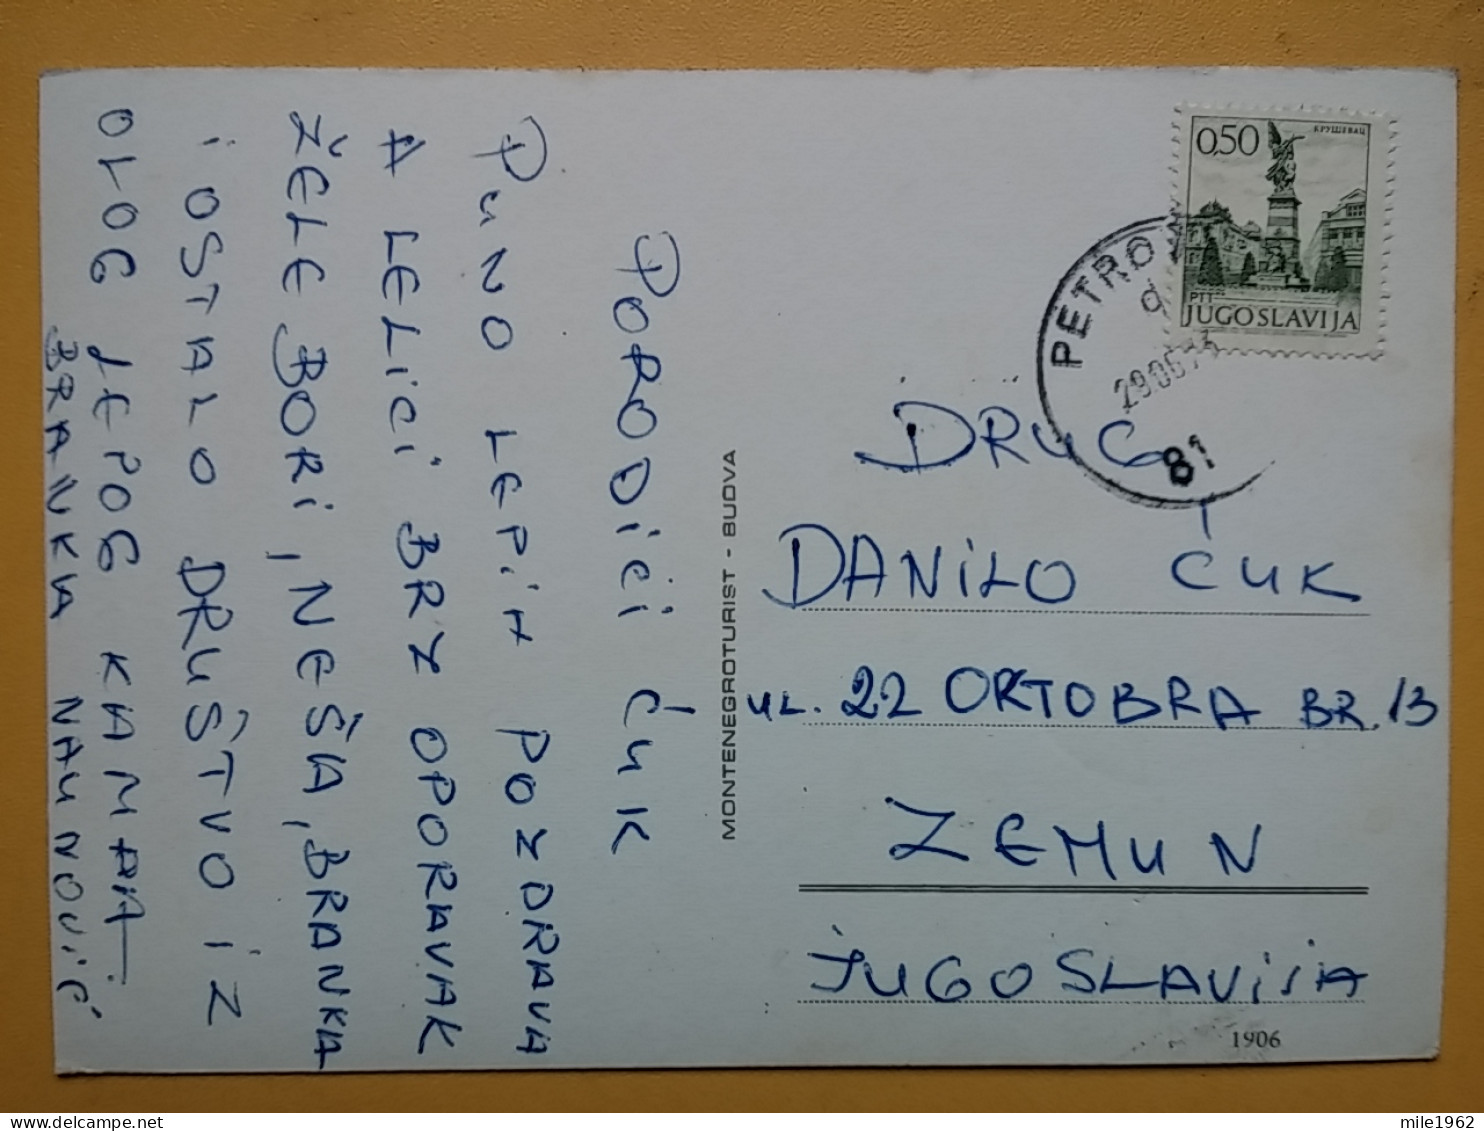 PORODICI ĆUK
PUNO LEPIH POZDRAVA
A LELICI BRZ OPORAVAK
ŽELE BORI, NEŠA, BRANKA
i OSTALO DRUŠTVO IZ
OLOG LEPOG KAMPA.
BRANKA NAUMOVIĆ
MONTENEGROTURIST - BUDOVA
0,50
КРУШЕВАЦ
PTT
JUGOSLAVIJA
PETROV
d
81
DRUG
DANILO ĆUK
UL. 22 OKTOBRA BR. 13
ZEMUN
JUGOSLAVIJA
1906
mile1962